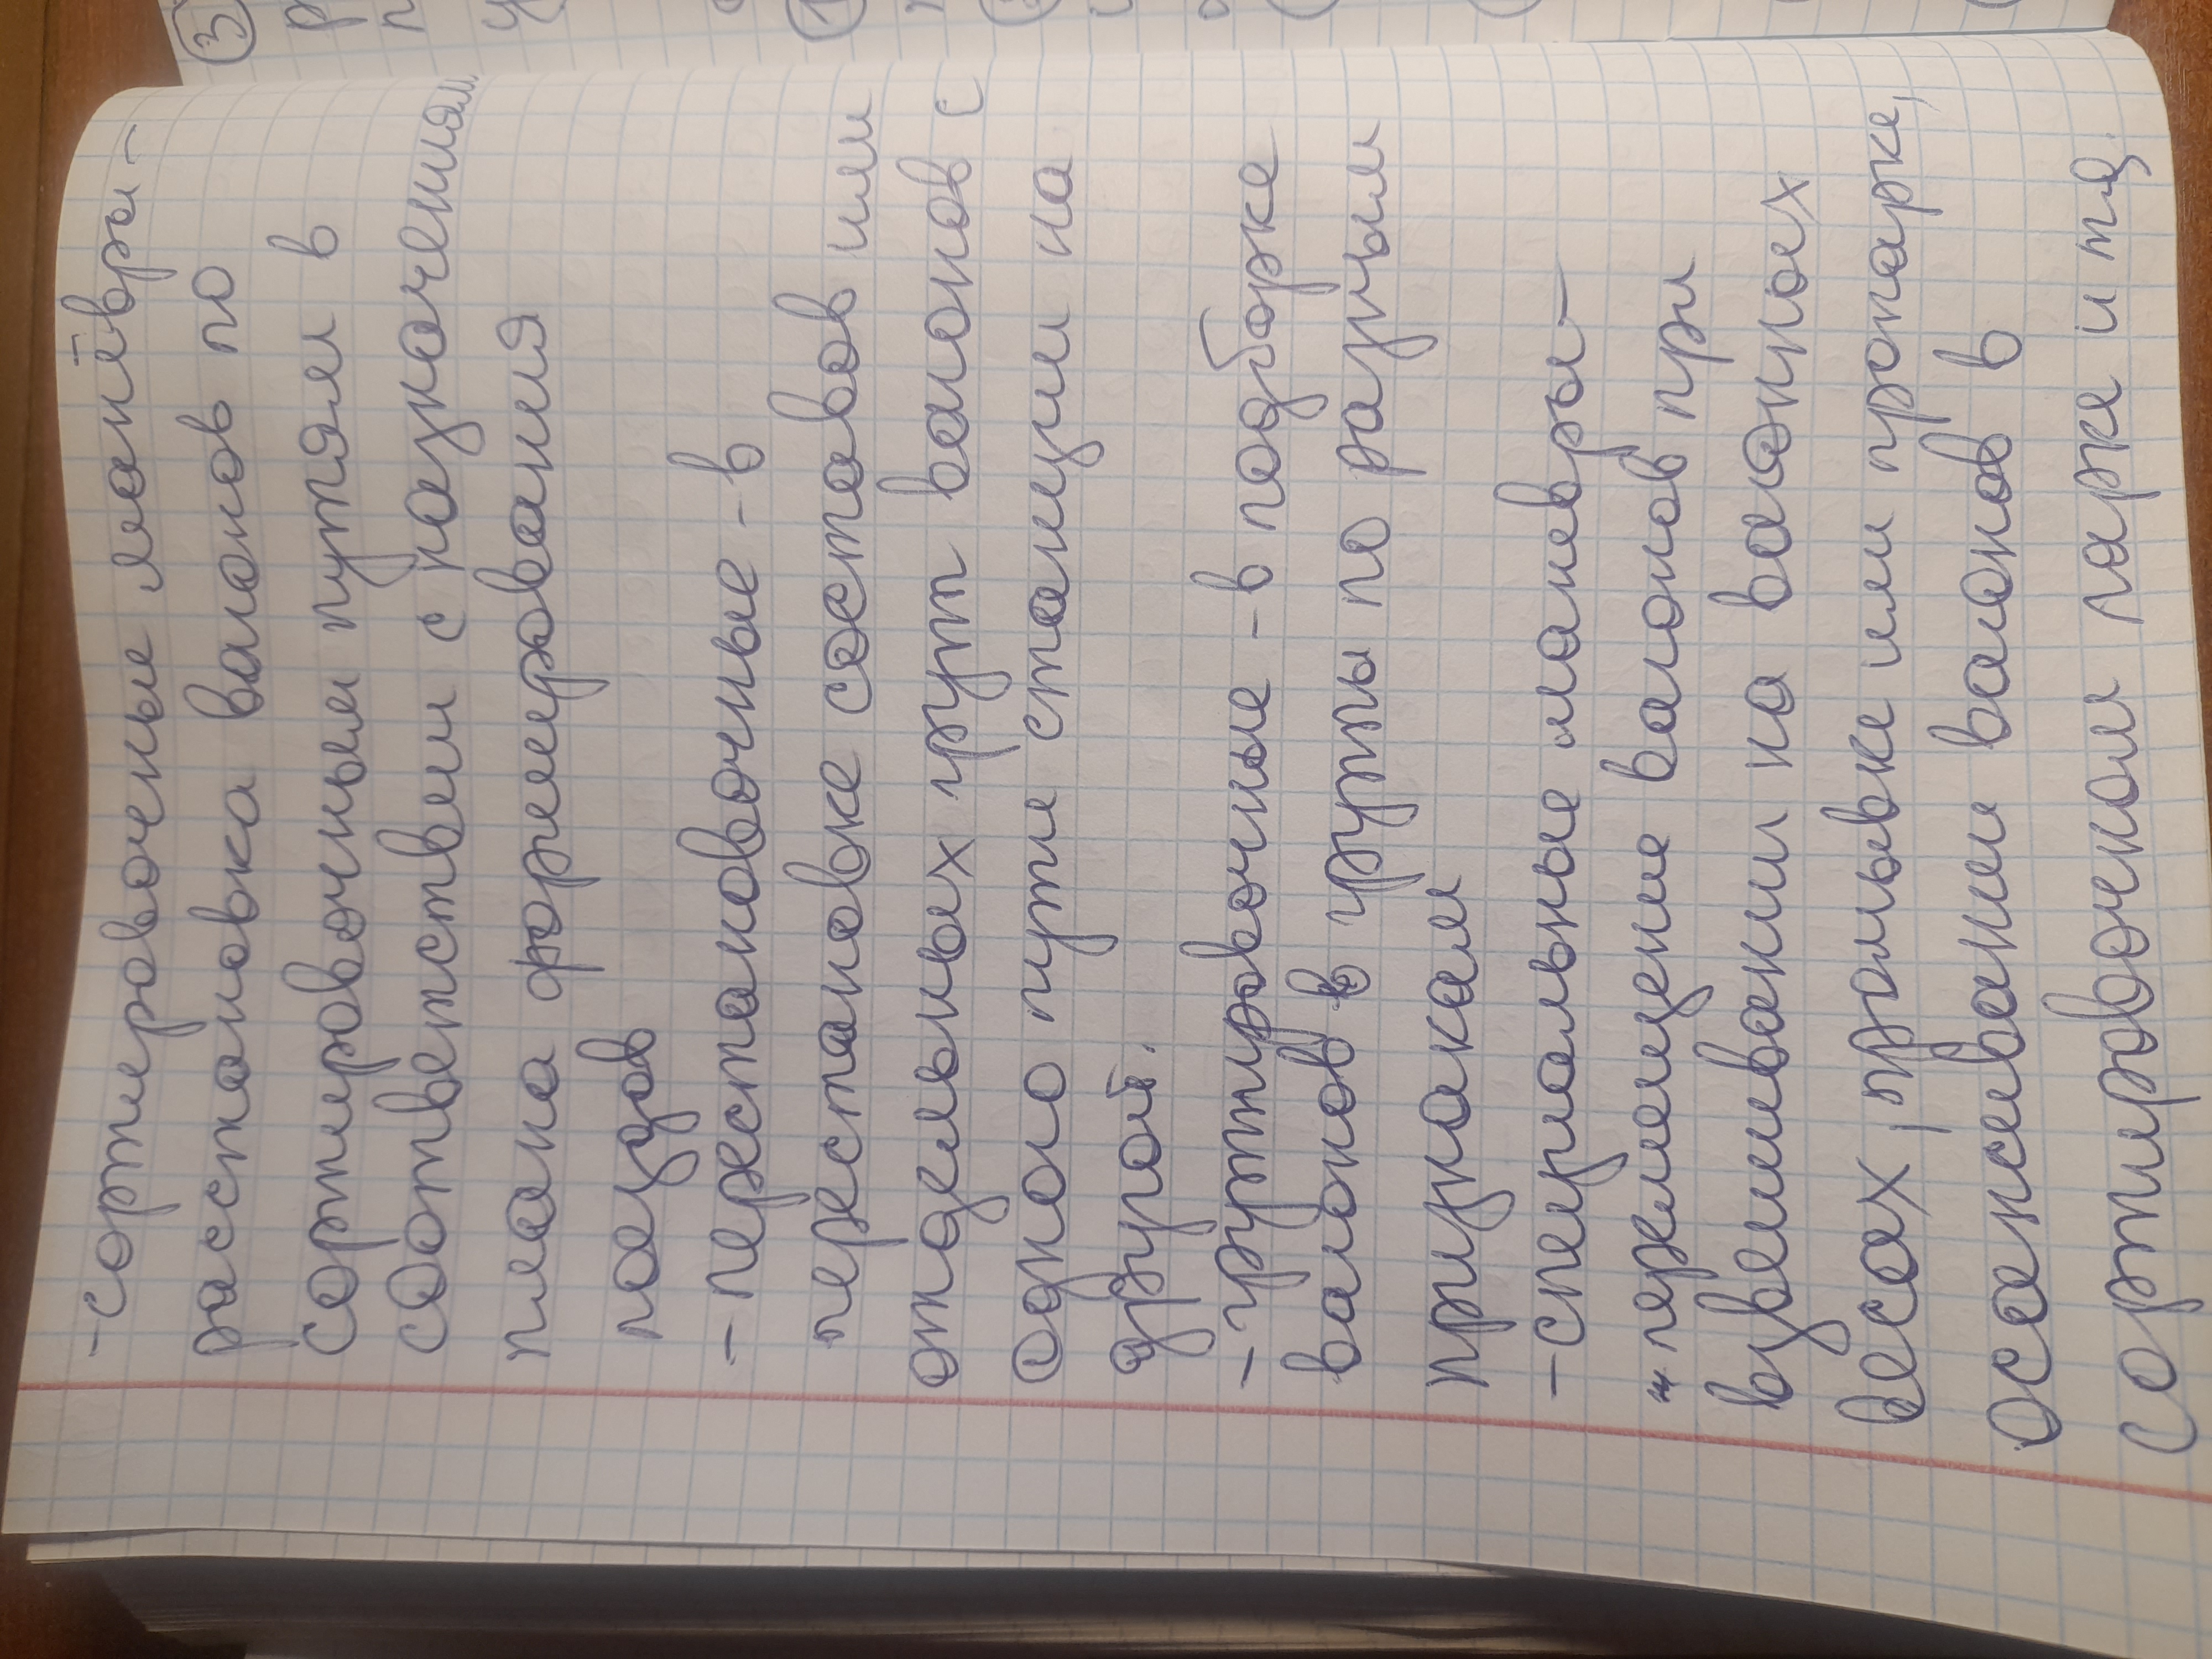 -сортировочные манёвры-
расстановка вагонов по
сортировочным путям в
соответствии с назначениям
плана формирования
поездов
- перестановочные - в
перестановке составов или
отдельных групп вагонов с
одного пути станции на
другой.
- группировочные - в подборке
вагонов в группы по разным
признакам
-специальные маневры-
перемещение вагонов при
взвешивании на вагонных
весах, промывке или пропарке,
осаживании вагонов в
сортировочном парке и тд.